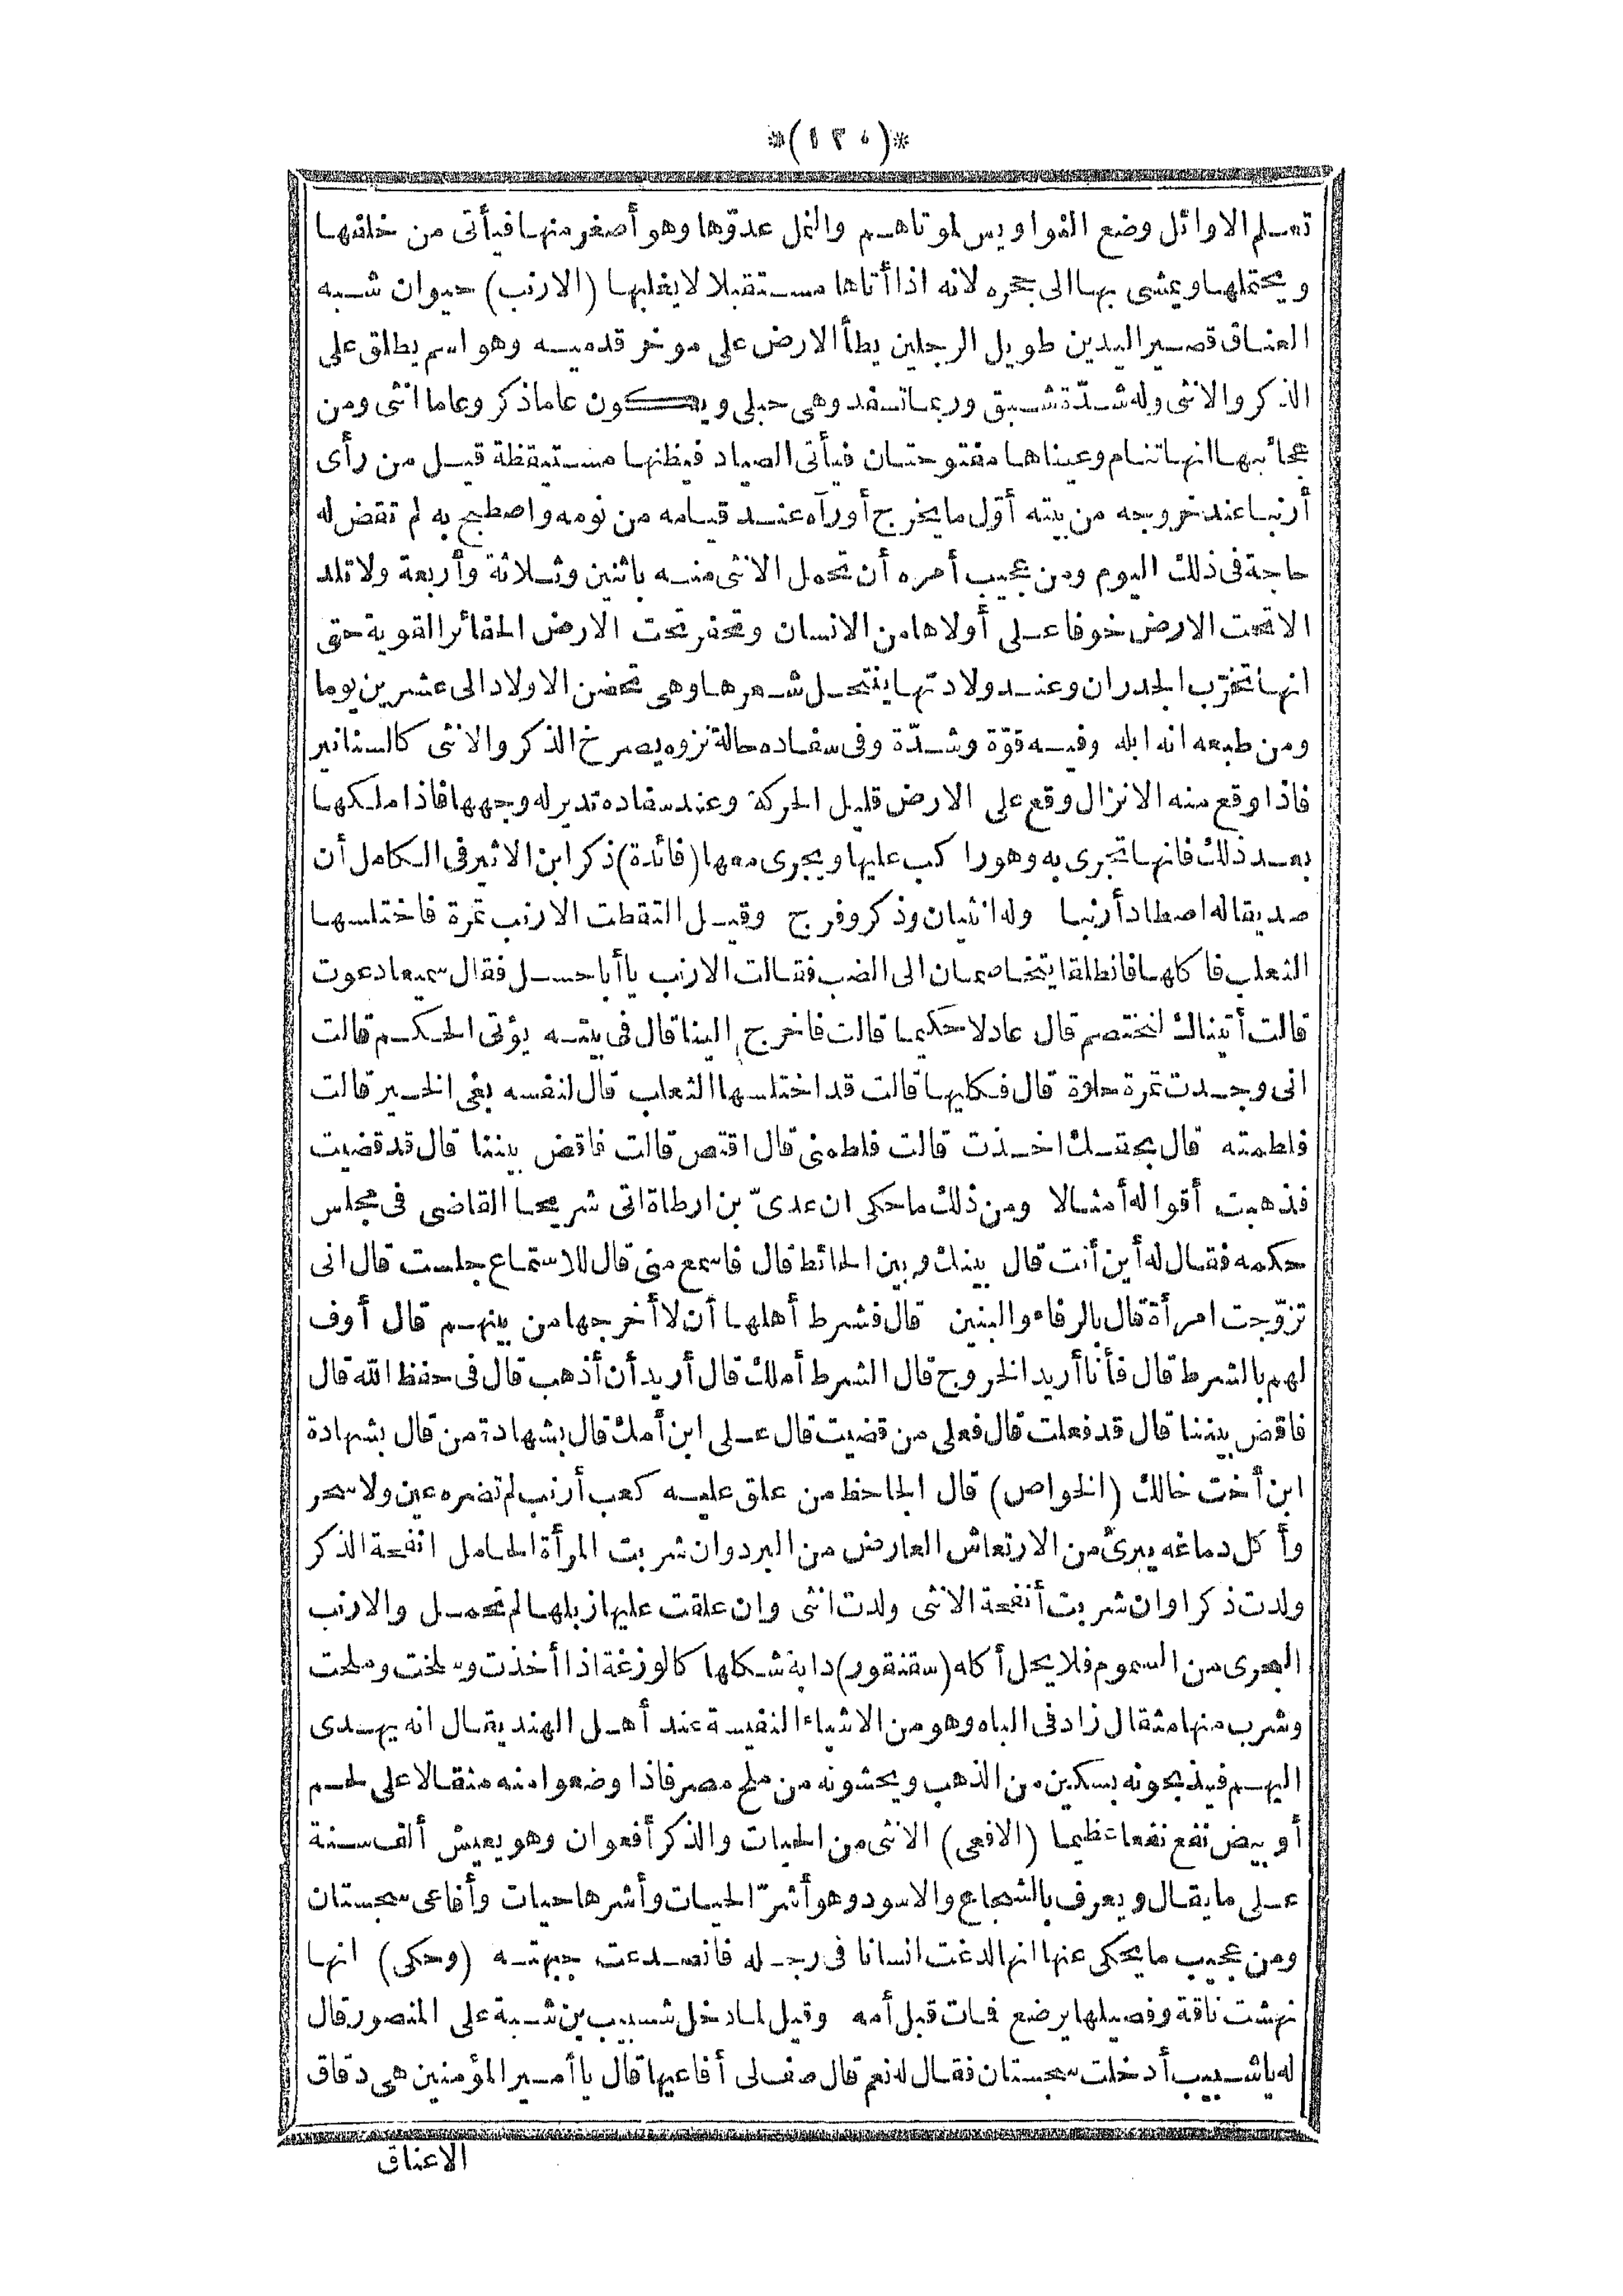 *(١٢٠)*
تعلم الاوائل وضع النواويس لموتاهم والنمل عدوّها وهو أصغر منها فيأتى من خلفها
ويحتملها ويمشى بها الى جحره لانه اذا أتاها مستقبلا لا يغلبها (الارنب) حيوان شبه
العناق قصير اليدين طويل الرجلين يطأ الارض على موخر قدميه وهو اسم يطلق على
الذكر والانثى وله شدّة شبق وربما تسفد وهى حبلى ويكون عاما ذكر وعاما انثى ومن
عجائبها انها تنام وعيناها مفتوحتان فيأتى الصياد فيظنها مستيقظة قيل من رأى
أرنبا عند خروجه من بيته أوّل ما يخرج أو رآه عند قيامه من نومه واصطبح به لم تقض له
حاجة فى ذلك اليوم ومن عجيب أمره أن تحمل الانثى منه باثنين وثلاثة وأربعة ولا تلد
الا تحت الارض خوفا على أولاها من الانسان وتحفر تحت الارض الحفائر القوية حتى
انها تخرّب الجدران وعند ولادتها ينتحل شعرها وهى تحضن الاولاد الى عشرين يوما
ومن طبعه انه ابله وفيه قوّة وشدّة وفى سفاده حالة نزوه يصرخ الذكر والانثى كالسنانير
فاذا وقع منه الانزال وقع على الارض قليل الحركة وعند سفاده تدير له وجهها فاذا ملكها
بعد ذلك فانها تجرى به وهو را كب عليها ويجرى معها (فائدة) ذكر ابن الاثير فى الكامل أن
صديقا له اصطاد أرنبا وله انثيان وذكر وفرج وقيل التقطت الارنب تمرة فاختلسها
الثعلب فا كلها فانطلقا يتخاصمان الى الضب فقالت الارنب يا أبا حسل فقال سميعا دعوت
قالت أتيناك لنختصم قال عادلا حكيما قالت فاخرج الينا قال فى بيته يؤتى الحكم قالت
انى وجدت تمرة حلوة قال فكليها قالت قد اختلسها الثعلب قال لنفسه بغى الخير قالت
فلطمته قال بحقك اخذت قالت فلطمنى قال اقتص قالت فاقض بيننا قال قد قضيت
فذهبت أقواله أمثالا ومن ذلك ما حكى ان عدىّ بن ارطاة اتى شريحا القاضى فى مجلس
حكمه فقال له أين أنت قال بينك وبين الحائط قال فاسمع منى قال للاستماع جلست قال انى
تزوّجت امرأة قال بالرفاء والبنين قال فشرط أهلها أن لا أخرجها من بينهم قال أوف
لهم بالشرط قال فأنا أريد الخروج قال الشرط أملك قال أريد أن أذهب قال فى حفظ الله قال
فاقض بيننا قال قد فعلت قال فعلى من قضيت قال على ابن أمك قال بشهادة من قال بشهادة
ابن أخت خالك (الخواص) قال الجاحظ من علق عليه كعب أرنب لم تضره عين ولا سحر
وأ كل دماغه يبرئ من الارتعاش العارض من البرد وان شربت المرأة الحامل انفحة الذكر
ولدت ذكرا وان شربت أنفحة الانثى ولدت انثى وان علقت عليها زبلها لم تحمل والارنب
البحرى من السموم فلا يحل أ كله (سقنقور) دابة شكلها كالوزغة اذا أخذت وسلخت وملحت
وشرب منها مثقال زاد فى الباه وهو من الاشياء النفيسة عند أهل الهند يقال انه يهدى
اليهم فيذبحونه بسكين من الذهب ويحشونه من ملح مصر فاذا وضعوا منه مثقالا على لحم
أو بيض نفع نفعا عظيما (الافعى) الانثى من الحيات والذكر أفعوان وهو يعيش ألف سنة
على ما يقال ويعرف بالشجاع والاسود وهو أشرّ الحيات وأشرها حيات وأفاعى سجستان
ومن عجيب ما يحكى عنها انها لدغت انسانا فى رجله فانصدعت جبهته (وحكى) انها
نهشت ناقة وفصيلها يرضع فمات قبل أمه وقيل لما دخل شبيب بن شبة على المنصور قال
له يا شبيب أدخلت سجستان فقال له نعم قال صف لى أفاعيها قال يا أمير المؤمنين هى دقاق
الاعناق